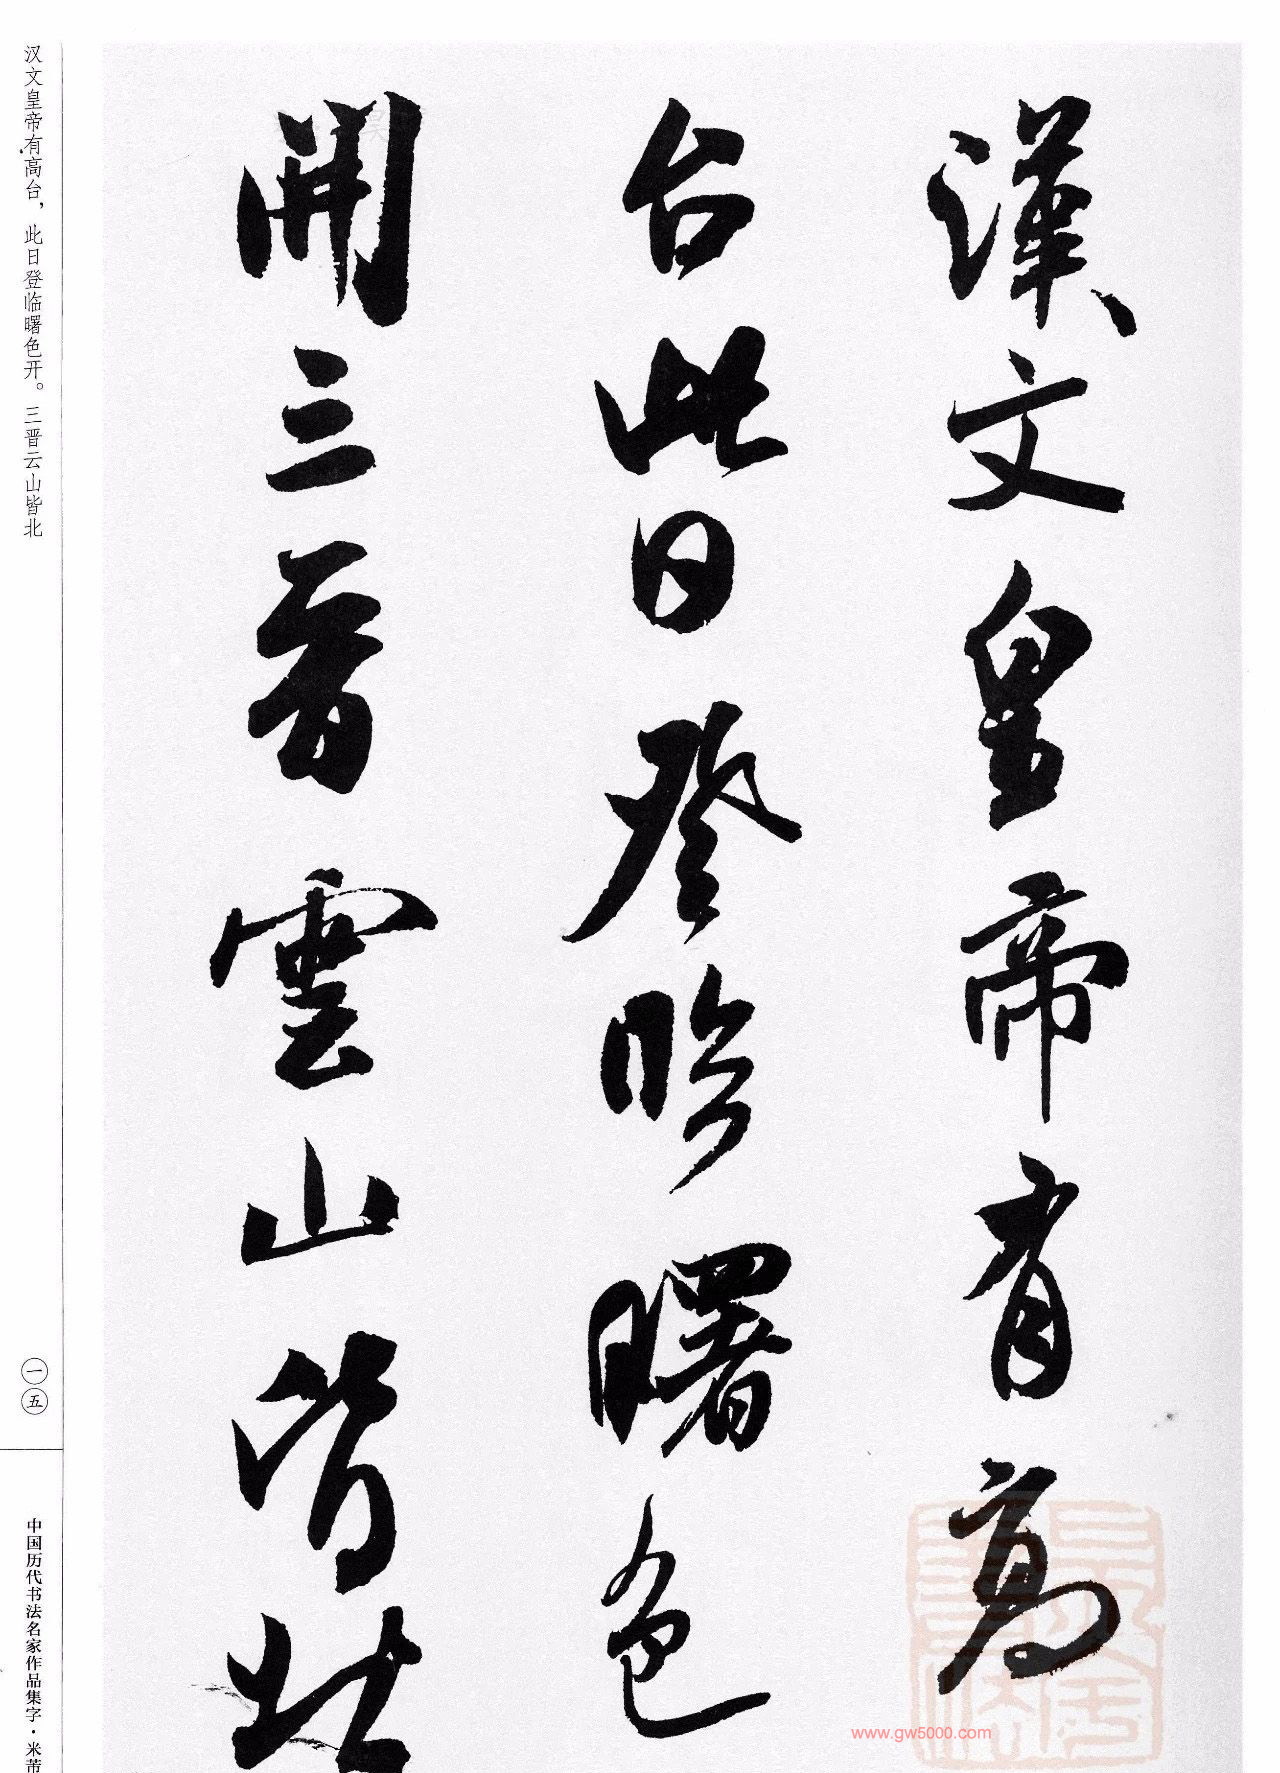 漢文皇帝有高
台此日登臨曙色
開三晉雲山皆北
汉文皇帝有高台，此日登临曙色开。三晋云山皆北
一五
中国历代书法名家作品集字·米芾
www.gw5000.com